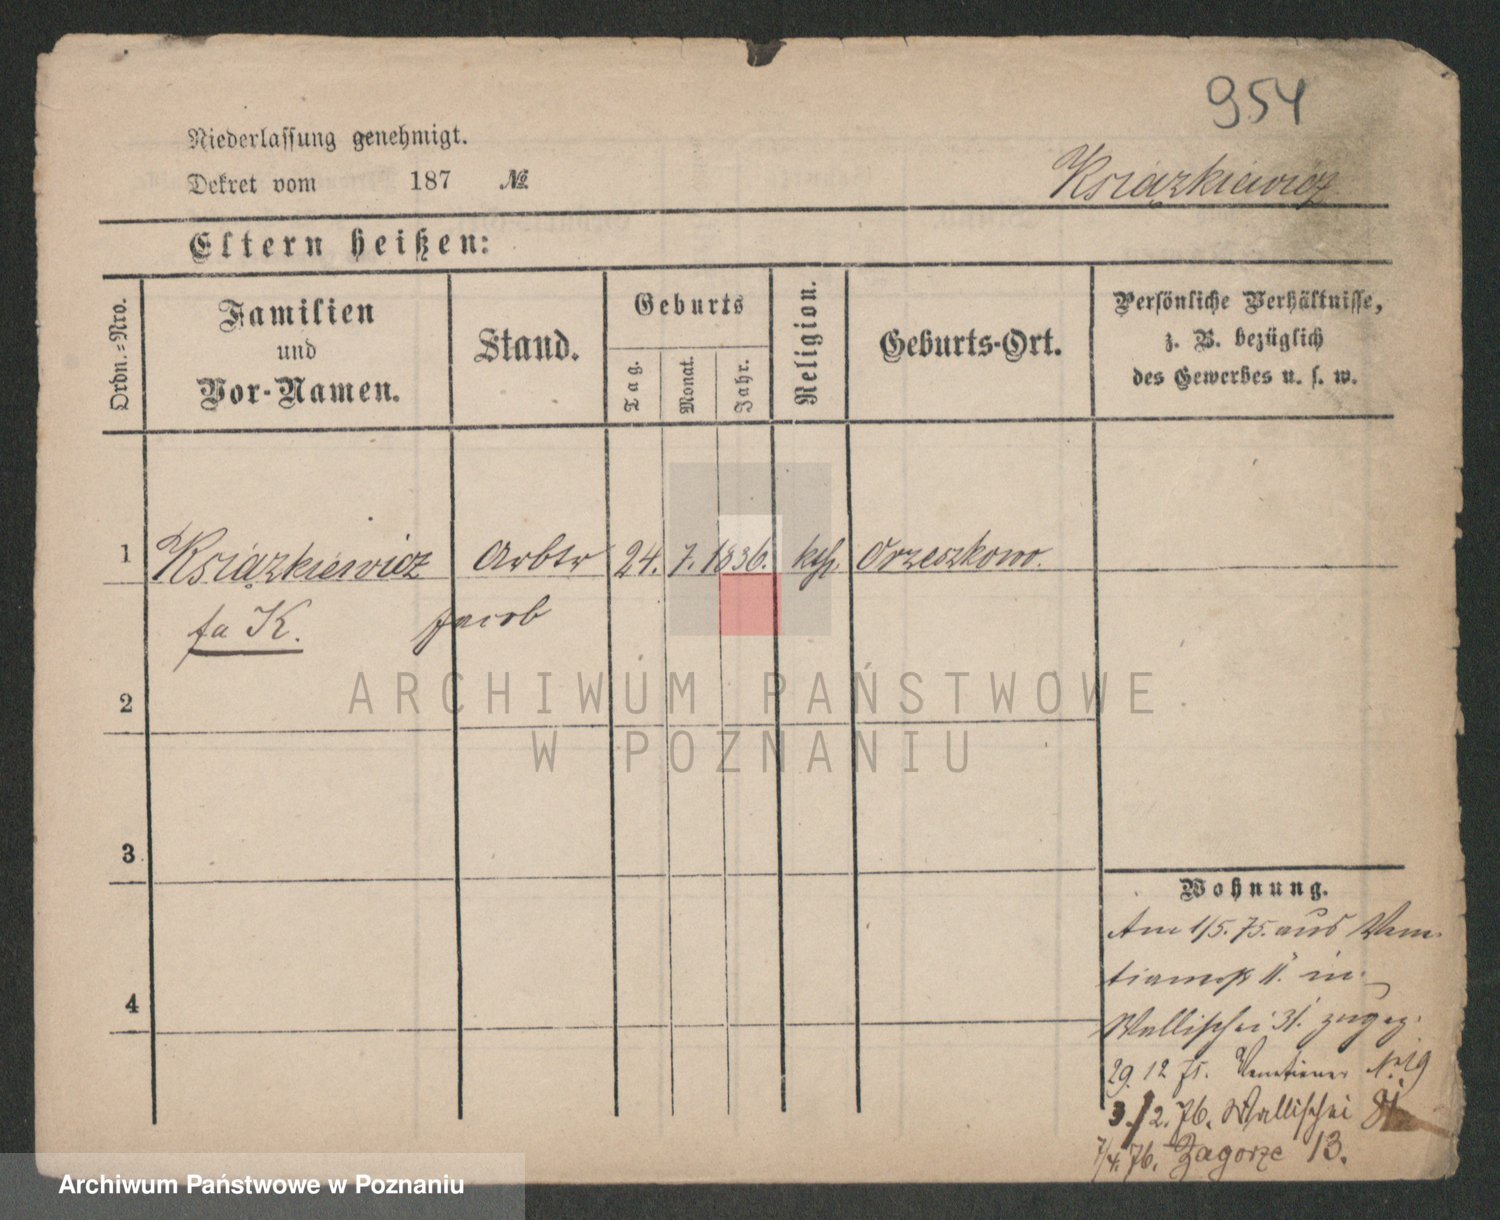 954
Niederlassung genehmigt.
Dekret vom 187 №
Książkiewicz
Eltern heißen:
Ordn.=Nro.
Familien
und
Vor-Namen.
Stand.
Geburts
Tag.
Monat.
Jahr.
Religion.
Geburts-Ort.
Persönliche Verhältnisse,
z. B. bezüglich
des Gewerbes u. s. w.
1 Książkiewicz Arbtr 24. 7. 1836. kth. Orzeszkowo.
fa K. Jacob
2
ARCHIWUM PAŃSTWOWE
W POZNANIU
3
4
Wohnung.
Am 1/5. 75. aus
II. in
Wallischei 31. zugez.
29. 12 75. Venetianer No. 19
3./2. 76. Wallischei
7/4. 76. Zagorze 13.
Archiwum Państwowe w Poznaniu